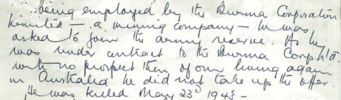 being employed by the Burma Corporation
Limited – a mining company – he was
asked to join the army reserve. As he
was under contract to the Burma Corp. Ltd.
with no prospect then of our living again
in Australia he did not take up the offer.
He was killed May 23rd 1942 –